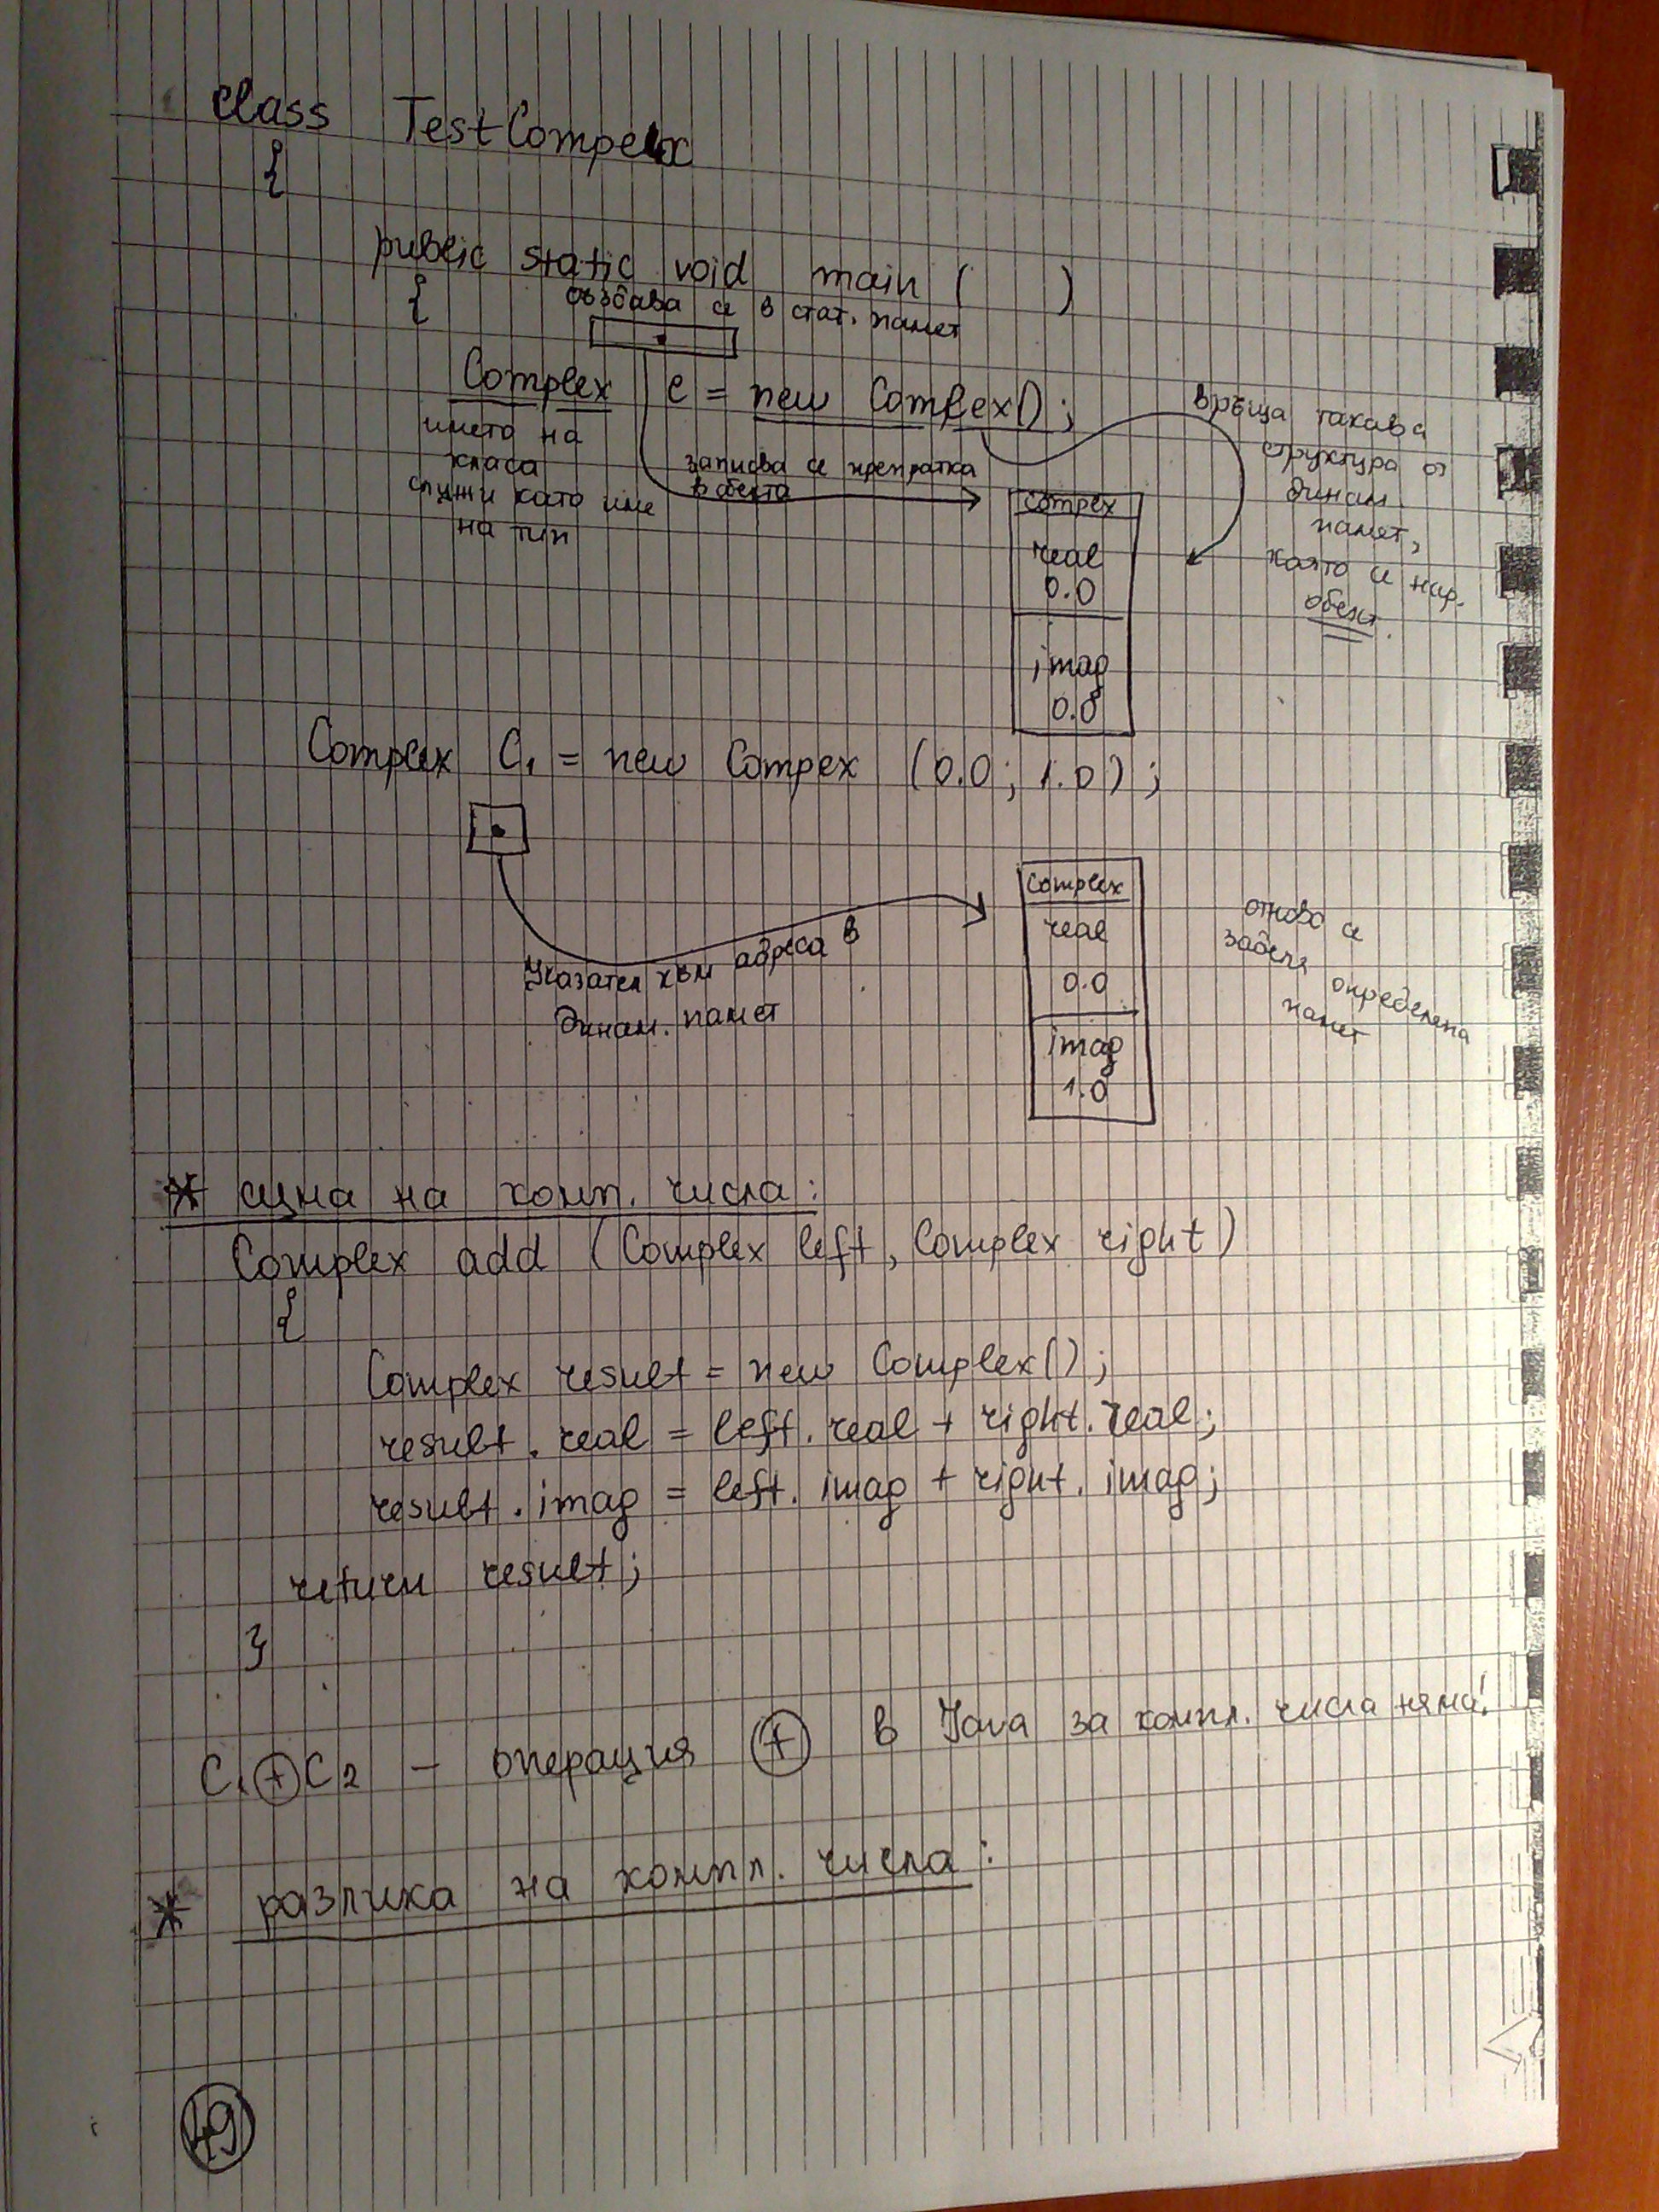 class TestCompex
{
public static void main ( )
{
създава се в стат. памет
Complex c = new Complex();
името на
класа
служи като име
на тип
записва се препратка
в обекта
връща такава
структура от
динам.
памет,
която се нар.
обект.
Compex
real
0.0
imag
0.0
Complex C₁ = new Compex (0.0; 1.0);
Указател към адреса в
динам. памет
Complex
real
0.0
imag
1.0
отново се
заделя определена
памет
* сума на комп. числа:
Complex add (Complex left, Complex right)
{
Complex result = new Complex();
result. real = left. real + right. real;
result. imag = left. imag + right. imag;
return result;
}
C₁ + C₂ – операция + в Java за компл. числа няма!
* разлика на компл. числа:
49